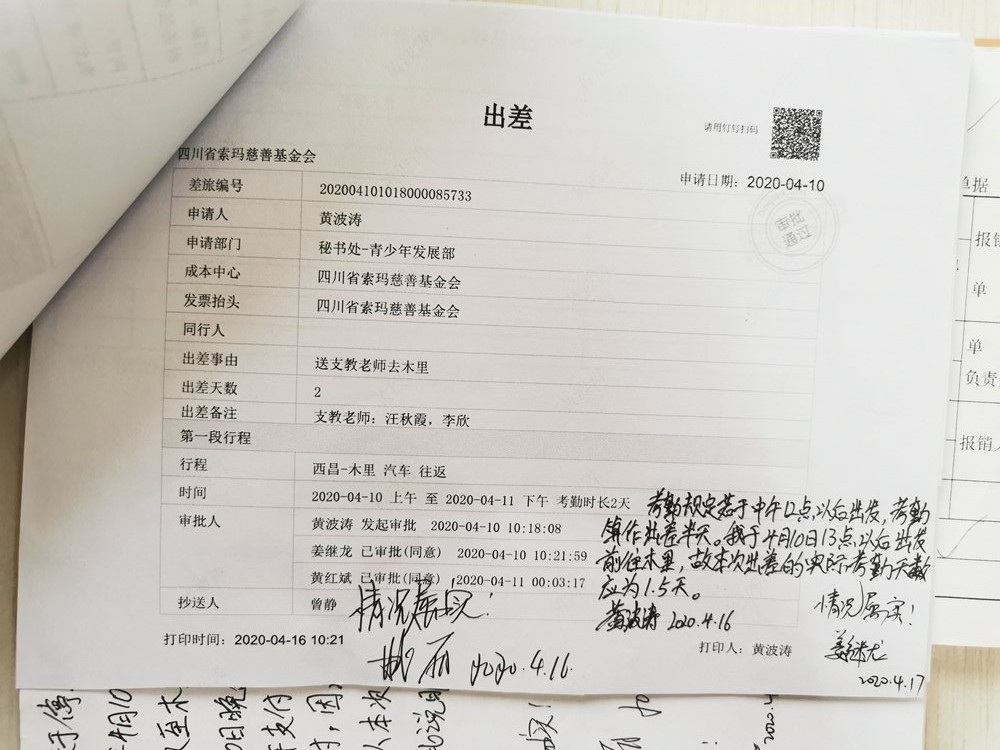 出差
请用钉钉扫码
四川省索玛慈善基金会
申请日期：2020-04-10
审批
通过
差旅编号 202004101018000085733
申请人 黄波涛
申请部门 秘书处-青少年发展部
成本中心 四川省索玛慈善基金会
发票抬头 四川省索玛慈善基金会
同行人
出差事由 送支教老师去木里
出差天数 2
出差备注 支教老师：汪秋霞，李欣
第一段行程
行程 西昌-木里 汽车 往返
时间 2020-04-10 上午 至 2020-04-11 下午 考勤时长2天
审批人 黄波涛 发起审批 2020-04-10 10:18:08
姜继龙 已审批(同意) 2020-04-10 10:21:59
黄红斌 已审批(同意) 2020-04-11 00:03:17
抄送人 曾静
打印时间：2020-04-16 10:21
打印人：黄波涛
考勤规定若于中午12点以后出发，考勤
算作出差半天。我于4月10日13点以后出发
前往木里，故本次出差的实际考勤天数
应为1.5天。
黄波涛 2020.4.16
情况属实！
2020.4.16.
情况属实！
姜继龙
2020.4.17
单据
报销
单
单
负责
报销人